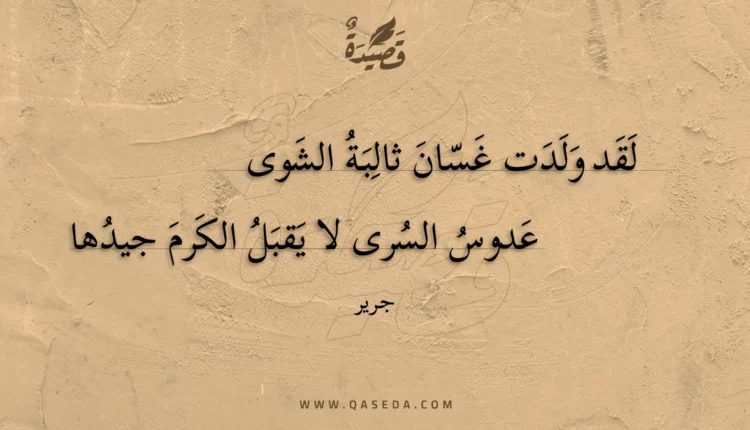 قَصِيدَةٌ
لَقَد وَلَدَت غَسّانَ ثالِبَةُ الشَوى
عَدوسُ السُرى لا يَقبَلُ الكَرمَ جيدُها
جرير
WWW.QASEDA.COM